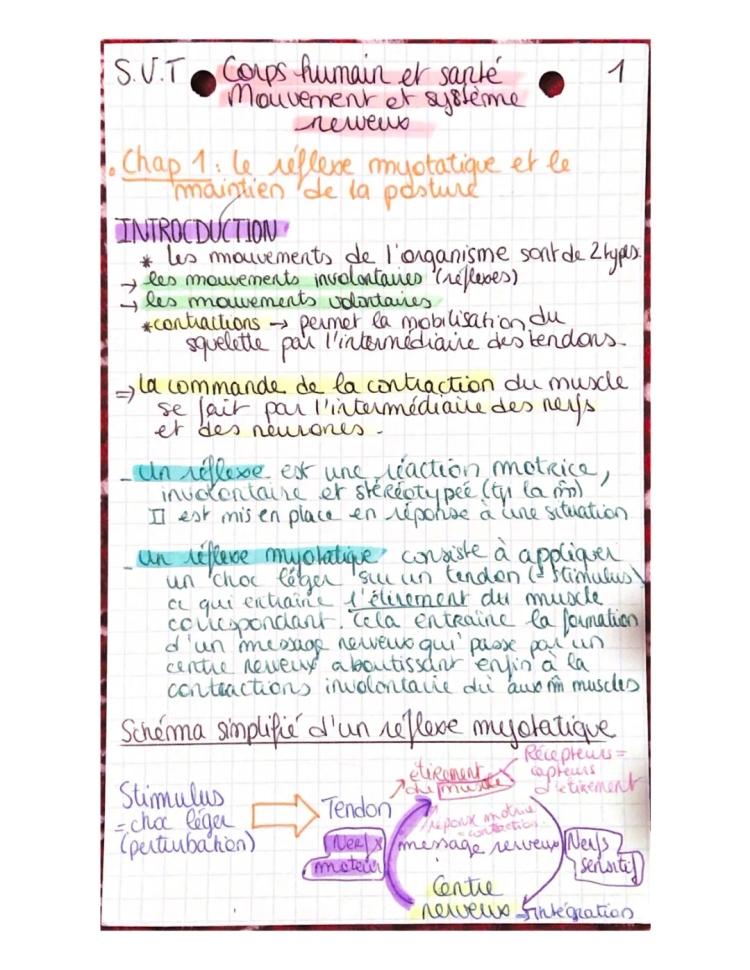 S.V.T Corps humain et santé 1
Mouvement et système
nerveux
Chap 1 : le réflexe myotatique et le
maintien de la posture
INTROCDUCTION
* Les mouvements de l'organisme sont de 2 types.
→ les mouvements involontaires (réflexes)
→ les mouvements volontaires
* contractions → permet la mobilisation du
squelette par l'intermédiaire des tendons.
⇒ la commande de la contraction du muscle
se fait par l'intermédiaire des nerfs
et des neurones.
- Un réflexe est une réaction motrice,
involontaire et stéréotypée (tjr la m̂)
Il est mis en place en réponse à une situation
- un réflexe myotatique consiste à appliquer
un choc léger sur un tendon (= stimulus)
ce qui entraine l'étirement du muscle
correspondant. Cela entraine la formation
d'un message nerveux qui passe par un
centre nerveux aboutissant enfin à la
contractions involontaire du aux m̂ muscles
Schéma simplifié d'un réflexe myotatique
Stimulus
= choc léger
(perturbation)
Tendon
étirement
du muscle
Récepteurs =
capteurs
d'étirement
réponse motrice
= contraction
Nerfs
moteur
message nerveux
Nerfs
sensitif
Centre
nerveux → intégration